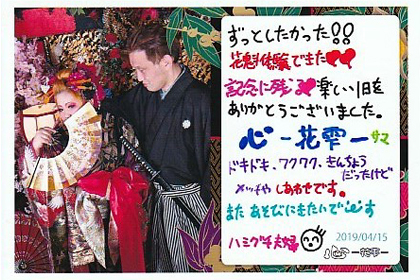 ずっとしたかった!!
花魁体験できた♥♥
記念に残る♥楽しい1日を
ありがとうございました。
心-花雫-サマ
ドキドキ、ワクワク、きんちょう
だったけど
メッチャしあわせです。
また あそびにきたいです
夫婦
2019/04/15